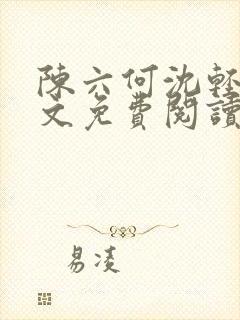 陳六何沈輕
文免費閱讀
易凌